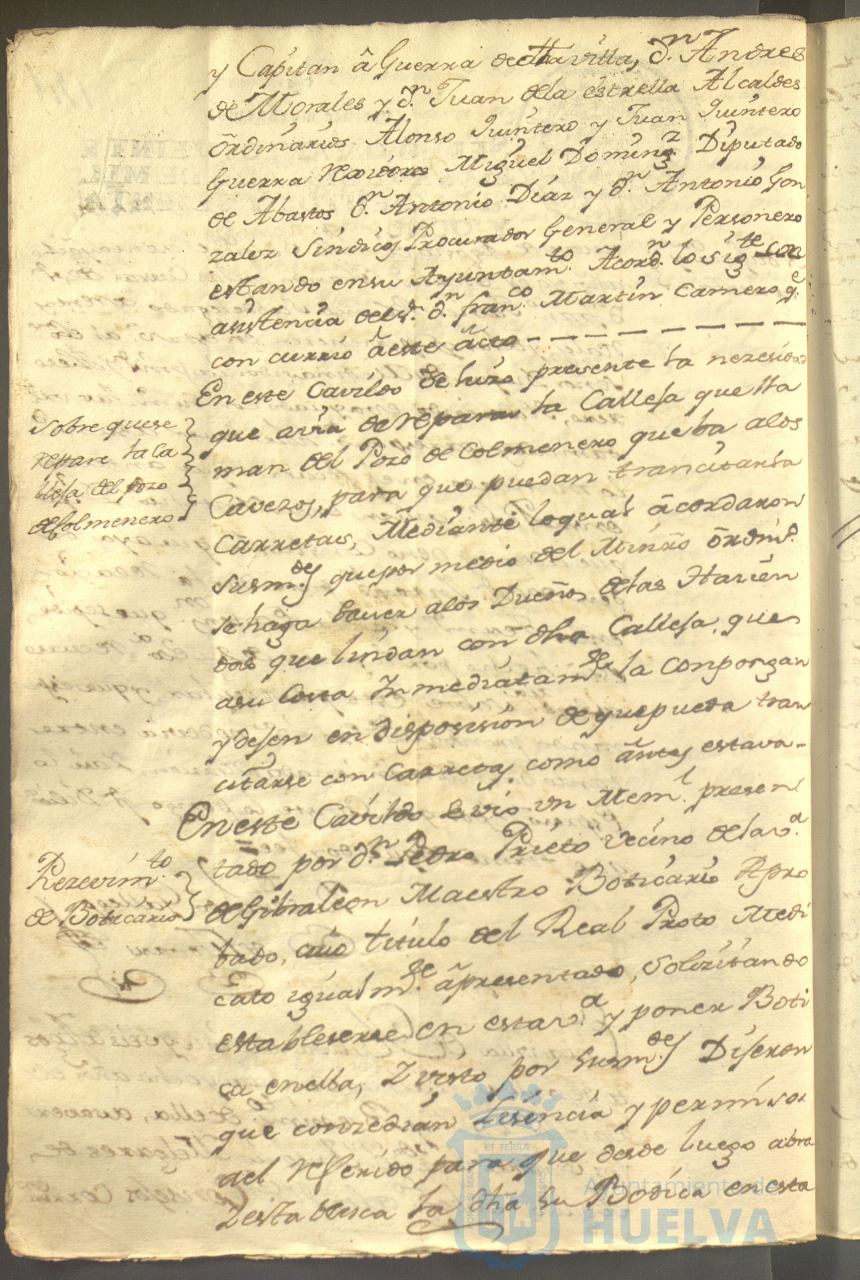 y Capitan â Guerra de dha villa, Dn. Andres
de Morales y Dn. Juan de la estrella Alcaldes
õrdinarios Alonso Quintero y Juan Quintero
Guerra Rexidores Miguel Domingz Diputado
de Abastos Dn. Antonio Diaz y Dn. Antonio Gon
zalez Sindicos Procurador General y Personero
estando en su Ayuntamto. Acordn. lo sigte con
asistencia del sr. Dn. Franco Martin Carnero qe
con currio â este âcto
En este Cavildo se hizo presente la nezesidad
que avia de reparar la Calleja que lla
man del Pozo de Colmenero que ba a los
Cavezos, para que puedan trancitarla
Carretas, Mediante lo qual âcordaron
Susmdes que por medio del Minrõ õrdino
se haga saver a los Dueños de las Hacien
das que lindan con dha Calleja, que
a su Costa Inmediatamte la conpongan
y dejen en disposision de que pueda tran
citarse con Carretas como ântes estava
Sobre que se
repare la Ca
lleja del pozo
de Colmenero
En este Cavildo se vio un Meml. presen
tado por Dn. Pedro Prieto vecino de la va.
de Gibraleon Maestro Boticario Apro
bado, cuio titulo del Real Proto Medi
cato igualmte. â presentado, Solizitando
establecerse en esta va. y poner Boti
ca en ella, Y visto por susmdes Dijeron
que conzedian Lisencia y permiso
al referido para que desde luego abra
y establesca la dha su Botica en esta
Rezevimto.
de Boticario
ET TERRA
Ayuntamiento de
HUELVA